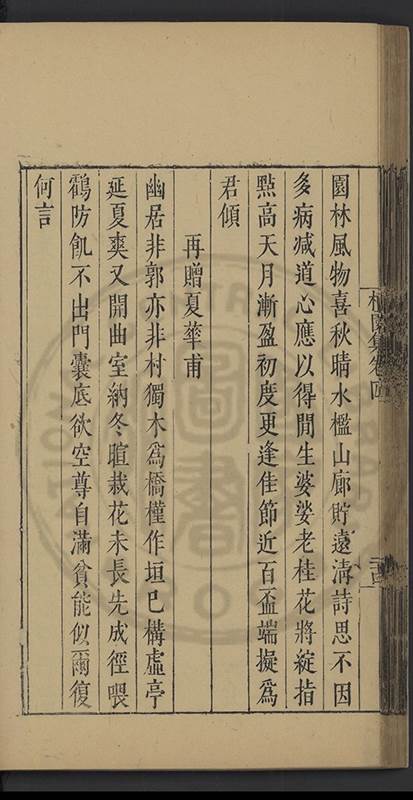 園林風物喜秋晴水檻山廊貯遠清詩思不因
多病减道心應以得閒生婆娑老桂花將綻指
點高天月漸盈初度更逢佳節近百盃端擬爲
君傾
再贈夏華甫
幽居非郭亦非村獨木爲橋槿作垣已構虛亭
延夏爽又開曲室納冬暄栽花未長先成徑喂
鶴防飢不出門囊底欲空尊自滿貧能似爾復
何言